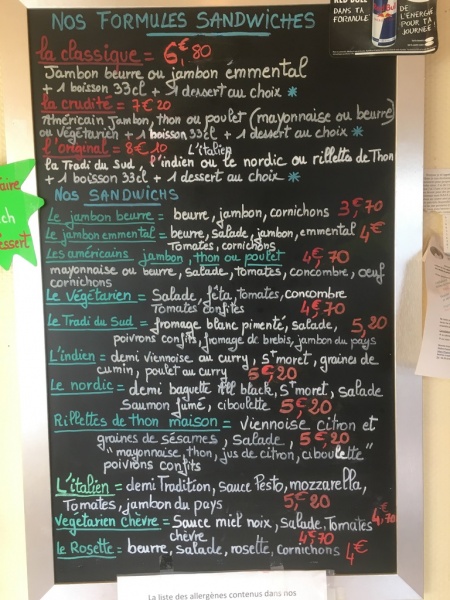 NOS FORMULES SANDWICHES
DANS TA
FORMULE
DE
L'ÉNERGIE
POUR TA
JOURNÉE!
la classique = 6€,80
Jambon beurre ou jambon emmental
+ 1 boisson 33cl + 1 dessert au choix *
la crudité = 7€20
Américain Jambon, thon ou poulet (mayonnaise ou beurre)
ou végétarien + 1 boisson 33cl + 1 dessert au choix *
l'original = 8€10 L'italien
la Tradi du Sud, l'indien ou le nordic ou rillettes de Thon
+ 1 boisson 33cl + 1 dessert au choix *
NOS SANDWICHS
Le jambon beurre = beurre, jambon, cornichons 3€,70
Le jambon emmental = beurre, salade, jambon, emmental 4€
Tomates, cornichons
Les américains jambon, thon ou poulet 4€,70
mayonnaise ou beurre, salade, tomates, concombre, oeuf
cornichons
Le Végétarien = Salade, fêta, tomates, concombre
Tomates confites 4€70
Le Tradi du Sud = fromage blanc pimenté, salade, 5,20
poivrons confits, fromage de brebis, jambon du pays
L'indien = demi viennoise au curry, St moret, graines de
cumin, poulet au curry 5€20
Le nordic = demi baguette black, St moret, salade
Saumon fumé, ciboulette 5€20
Rillettes de thon maison = viennoise citron et
graines de sésames, salade, 5€,20
"mayonnaise, thon, jus de citron, ciboulette"
poivrons confits
L'italien = demi Tradition, sauce Pesto, mozzarella,
Tomates, jambon du pays 5€,20
Végétarien chèvre = Sauce miel noix, salade, Tomates 4,70
chèvre 4€70
le Rosette = beurre, salade, rosette, cornichons 4€
La liste des allergènes contenus dans nos